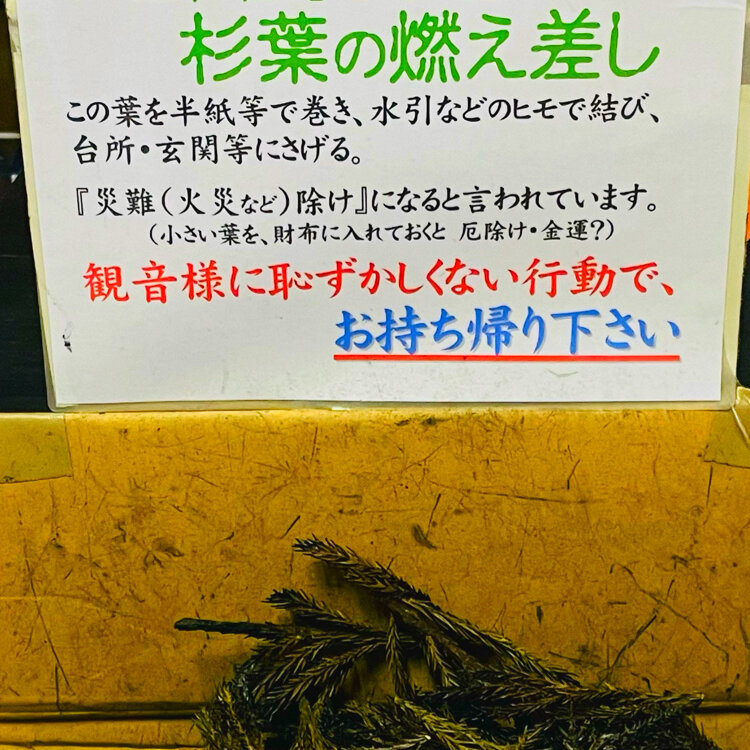 杉葉の燃え差し
この葉を半紙等で巻き、水引などのヒモで結び、
台所・玄関等にさげる。
『災難(火災など)除け』になると言われています。
(小さい葉を、財布に入れておくと 厄除け・金運?)
観音様に恥ずかしくない行動で、
お持ち帰り下さい